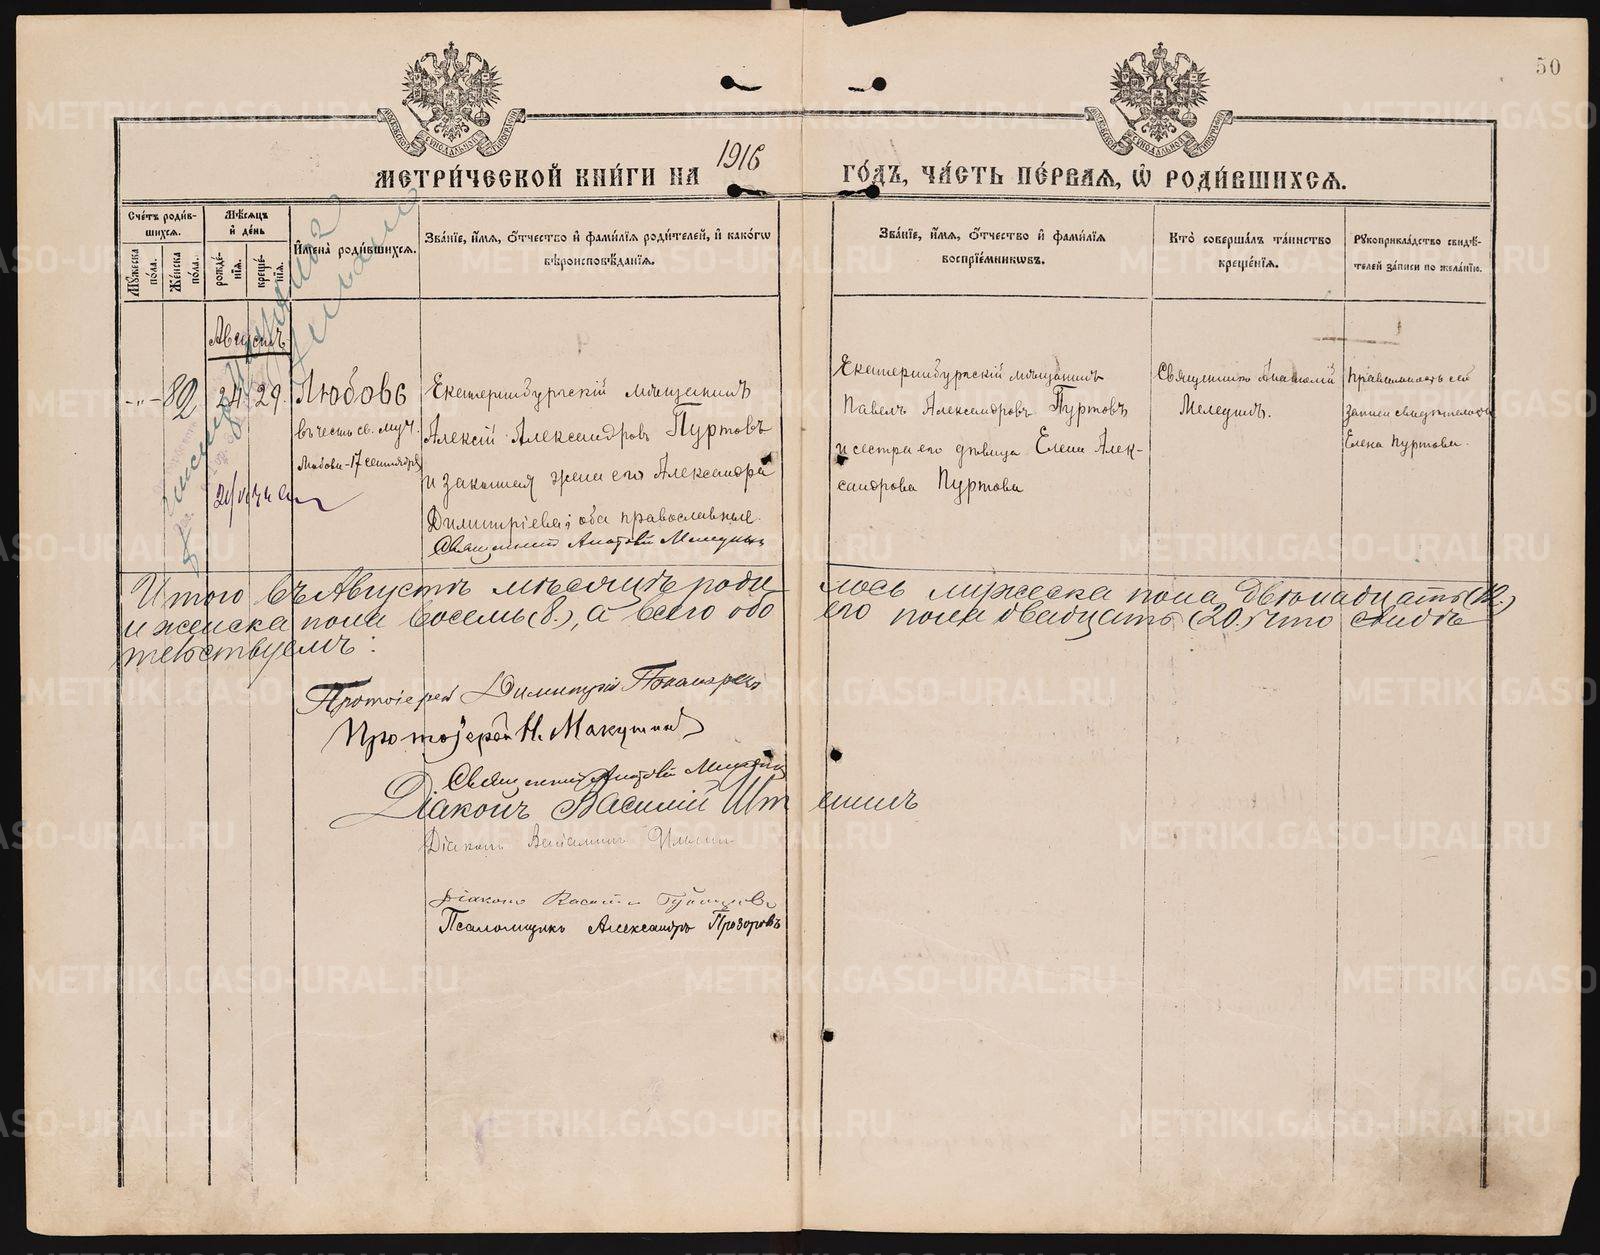 50
МЕТРИ́ЧЕСКОЙ КНИ́ГИ НА 1916 ГО́ДЪ, ЧА́СТЬ ПЕ́РВАЯ, Ѿ РОДИ́ВШИХСЯ.
Сче́тъ роди́в-
шихся.
Мѣ́сяцъ
и҆ де́нь
Мꙋ́жеска
по́ла.
Же́нска
по́ла.
рожде́-
нїя.
креще́-
нїя.
И҆мена̀ роди́вшихся.
Зва́нїе, и҆́мя, ѻ҆́тчество и҆ фами́лїя роди́телей, и҆ како́гѡ
вѣроисповѣ́данїя.
Зва́нїе, и҆́мя, ѻ҆́тчество и҆ фами́лїя
воспрїе́мникѡвъ.
Кто̀ соверша́лъ та́инство
креще́нїя.
Рꙋкоприкла́дство свидѣ́-
телей за́писи по жела́нїю.
Августъ
-"- 82 24 29.
Любовь
въ честь св. муч.
Любови - 17 сентября
Екатеринбургскій мѣщанинъ
Алексій Александровъ Пуртовъ
и законная жена его Александра
Димитріева; оба православные.
Священникъ Анатолій
Екатеринбургскій мѣщанинъ
Павелъ Александровъ Пуртовъ
и сестра его дѣвица Елена Алек-
сандрова Пуртова
Священникъ Анатолій
Правильность сей
записи свидѣтельствую
Елена Пуртова.
Итого въ Августѣ мѣсяцѣ роди лось мужеска пола двѣнадцать (12.)
и женска пола восемь (8.), а всего обо его пола двадцать (20.) что свидѣ
тельствуемъ:
Протоіерей Димитрій
Протоіерей Н. Макушинъ
Священникъ Анатолій
Діаконъ Василій
Діаконъ Веніаминъ
Діаконъ
Псаломщикъ Александръ Прозоровъ
METRIKI.GASO-URAL.RU